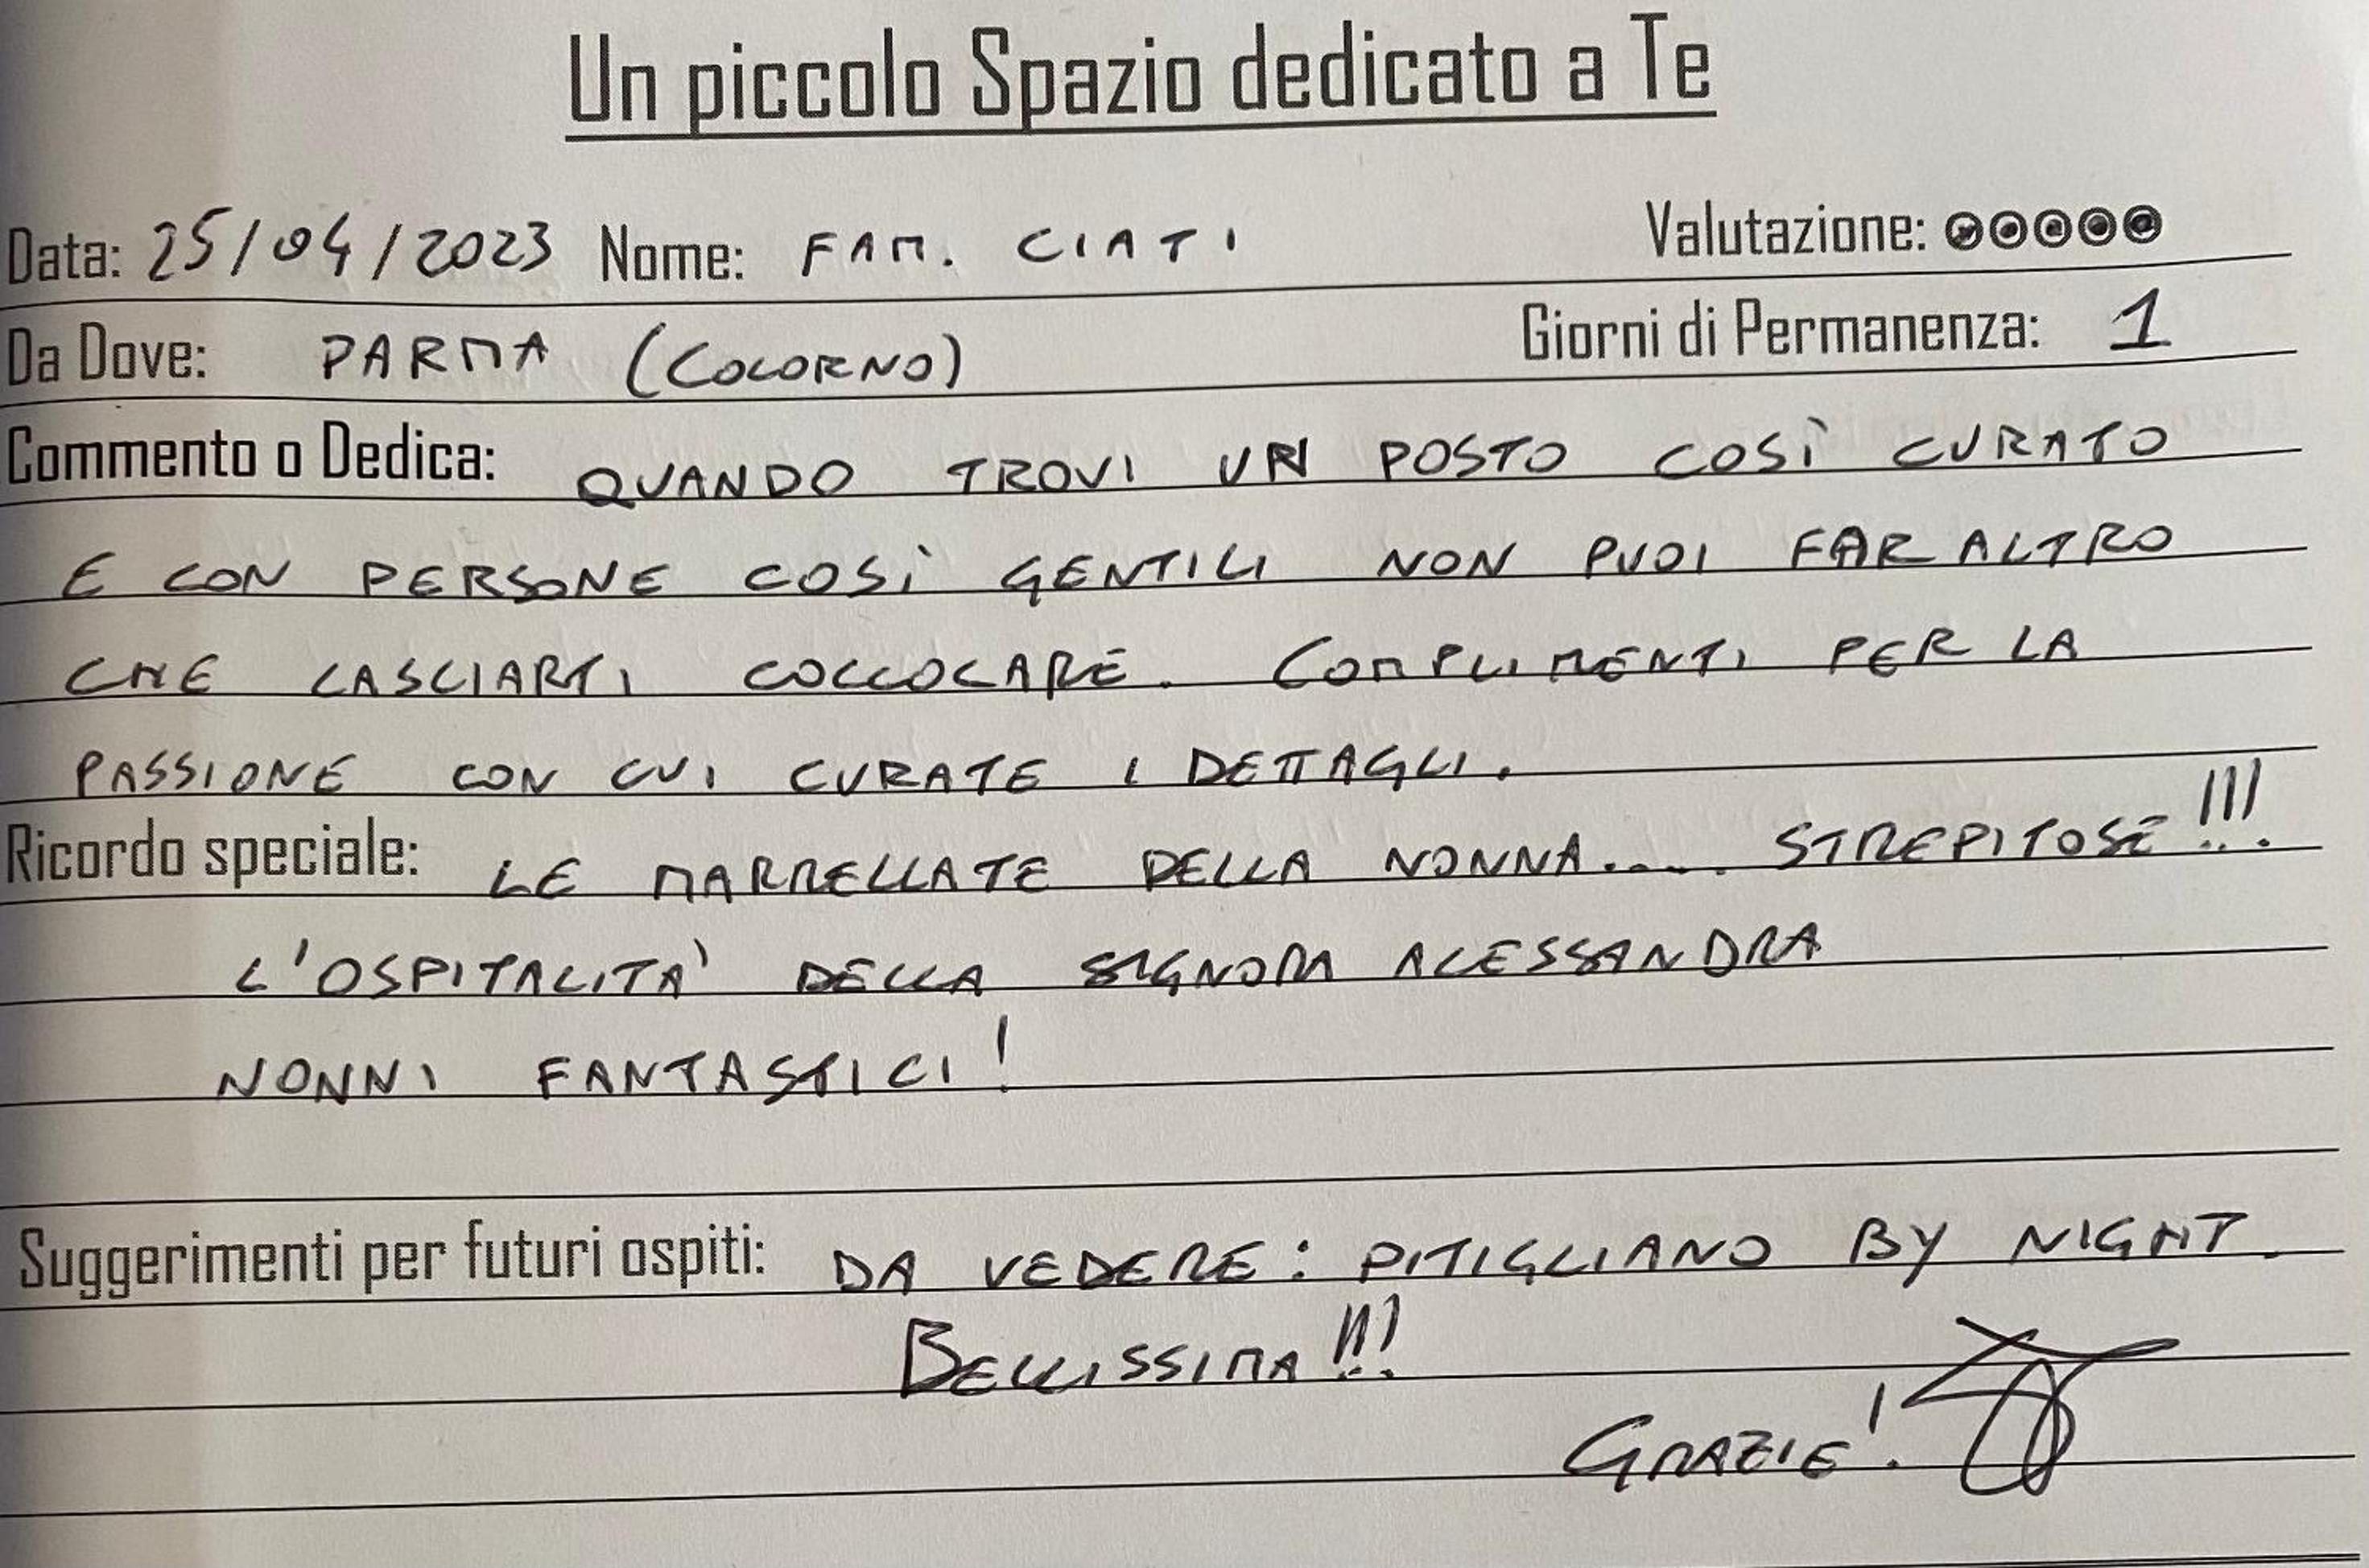 Un piccolo Spazio dedicato a Te
Data: 25/04/2023 Nome: FAM. CIATI Valutazione:
Da Dove: PARMA (COLORNO) Giorni di Permanenza: 1
Commento o Dedica: QUANDO TROVI UN POSTO COSÌ CURATO
E CON PERSONE COSÌ GENTILI NON PUOI FAR ALTRO
CHE LASCIARTI COCCOLARE. COMPLIMENTI PER LA
PASSIONE CON CUI CURATE I DETTAGLI.
Ricordo speciale: LE MARMELLATE DELLA NONNA.... STREPITOSE!!!
L'OSPITALITA' DELLA SIGNORA ALESSANDRA
NONNI FANTASTICI!
Suggerimenti per futuri ospiti: DA VEDERE: PITIGLIANO BY NIGHT.
BELLISSIMA!!!
GRAZIE!